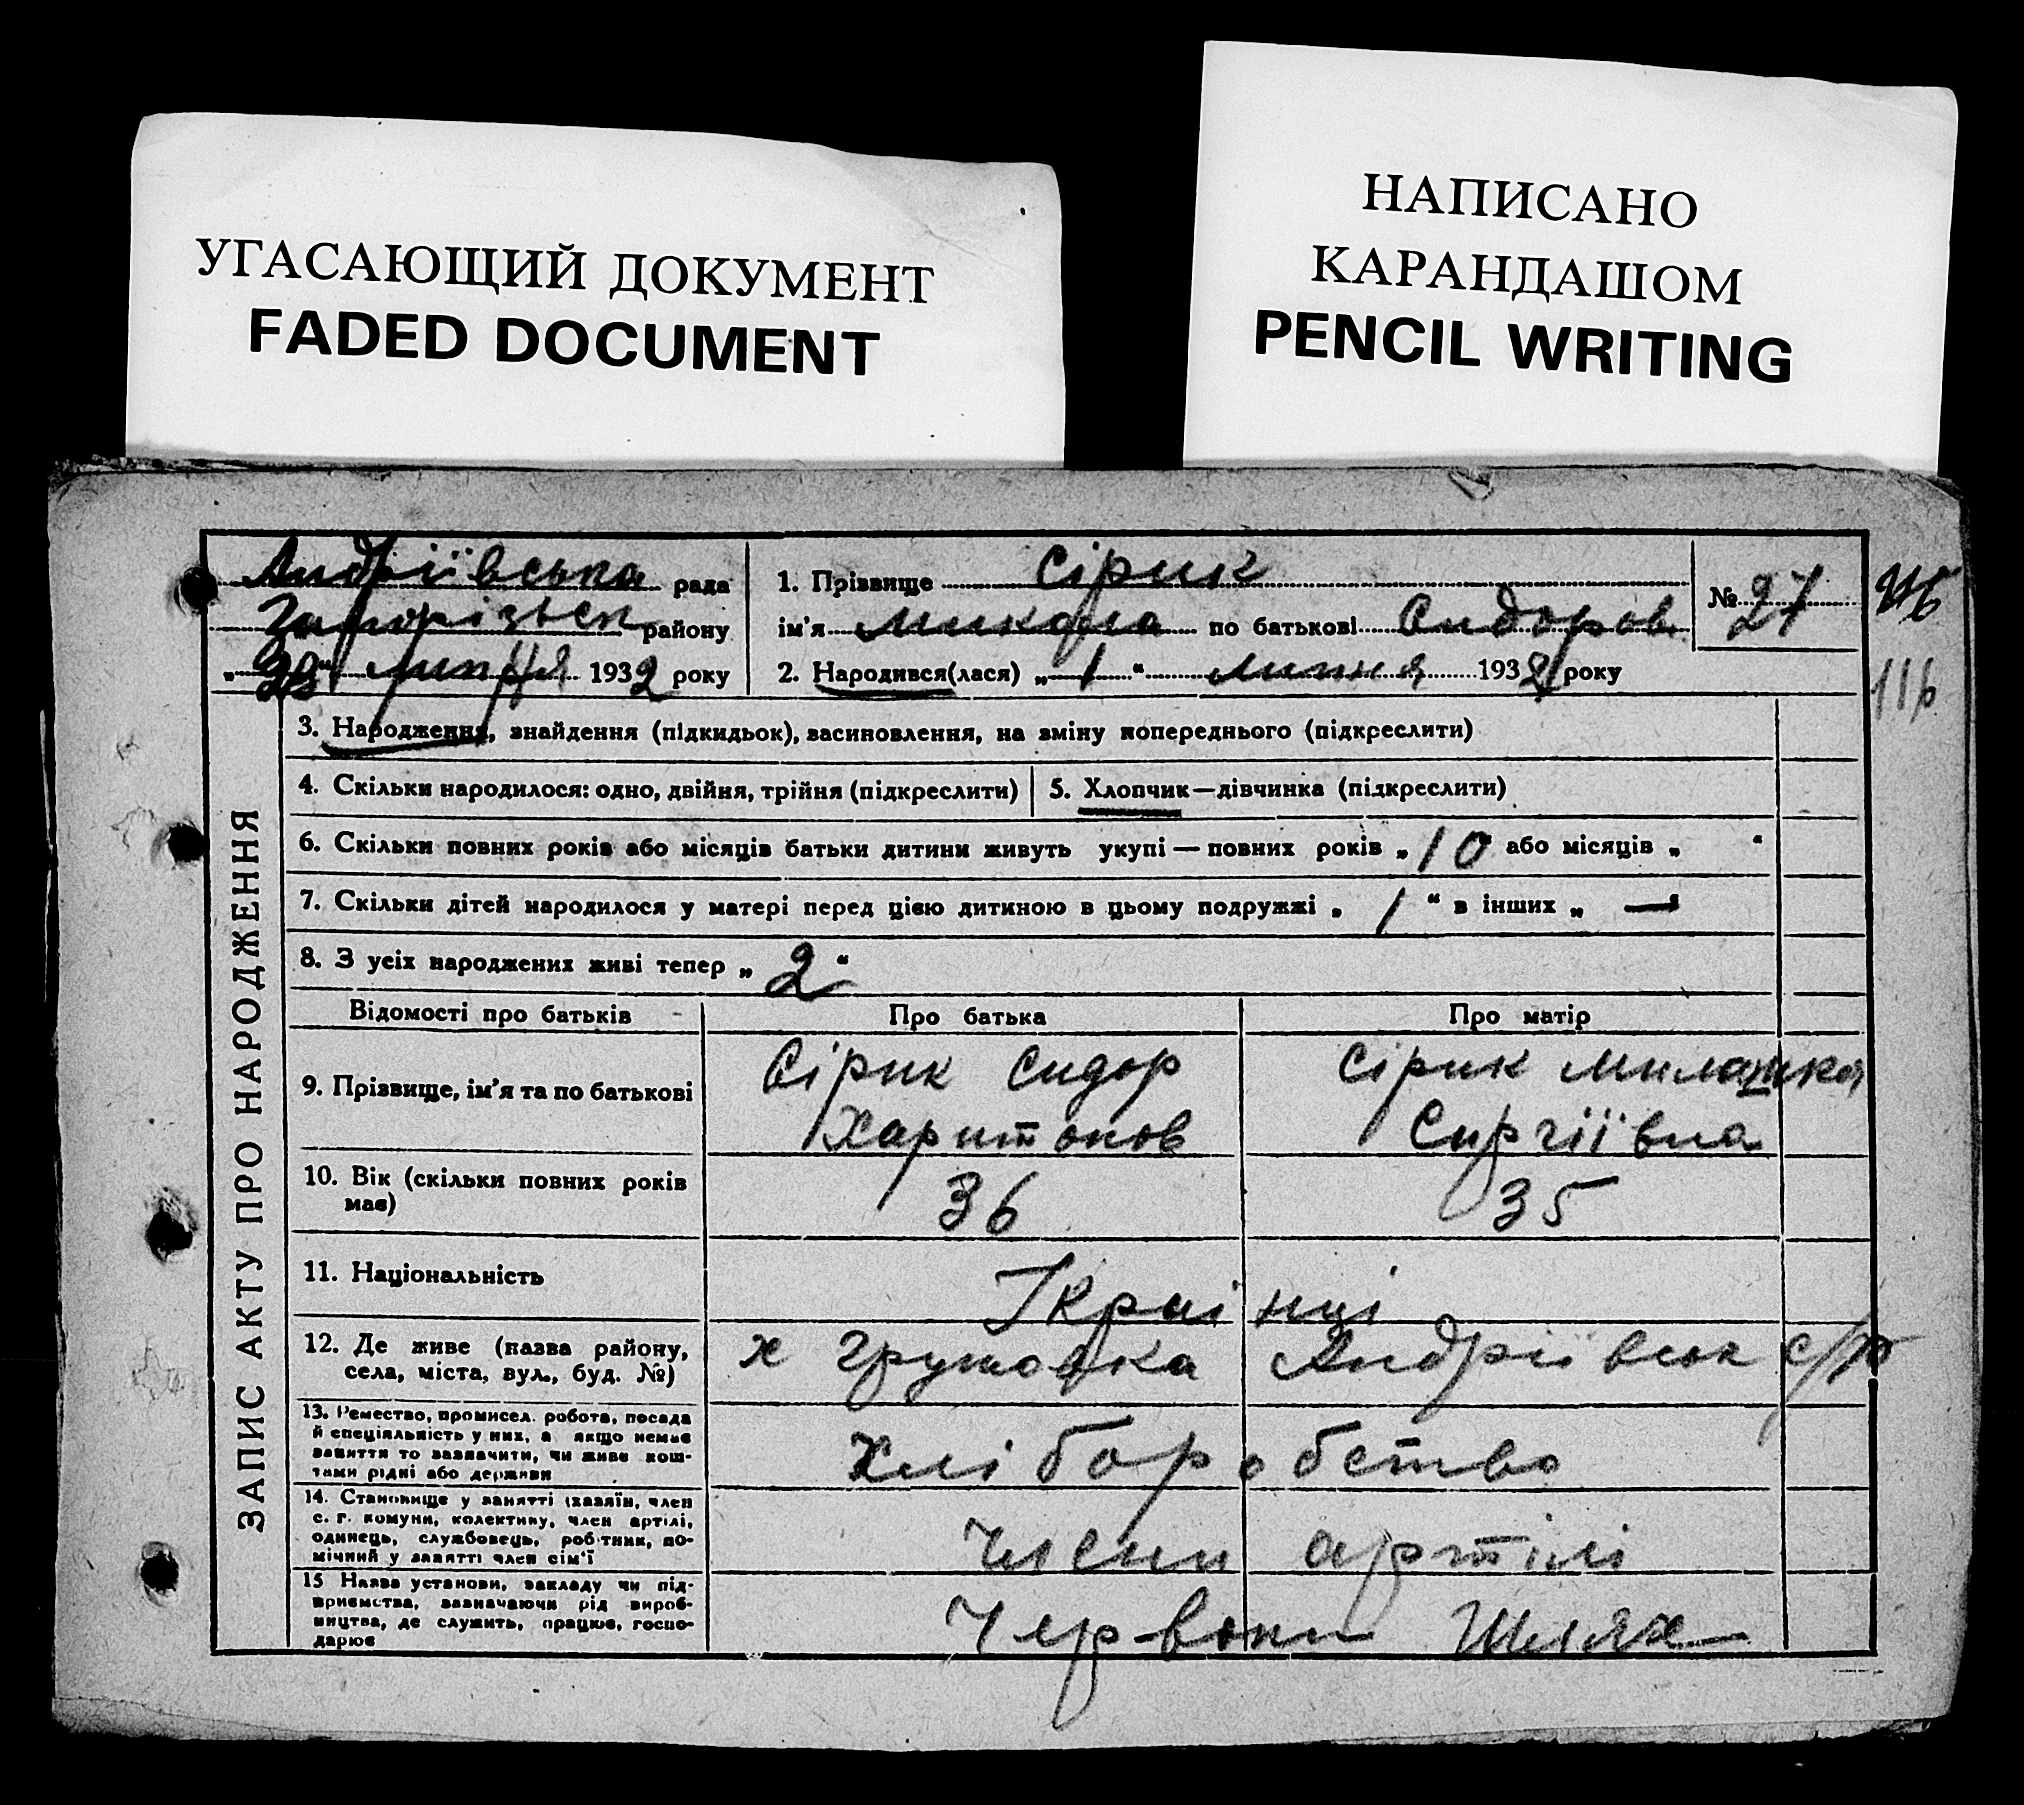 УГАСАЮЩИЙ ДОКУМЕНТ
FADED DOCUMENT
НАПИСАНО
КАРАНДАШОМ
PENCIL WRITING
Андріївська рада
Запорізьк району
„28“ липня 1932 року
1. Прізвище Сірик
ім'я Микола по батькові Сидоров
2. Народився(лася) „1“ липня 1932 року
№ 27
11б
ЗАПИС АКТУ ПРО НАРОДЖЕННЯ
3. Народження, знайдення (підкидьок), засиновлення, на зміну попереднього (підкреслити)
4. Скільки народилося: одно, двійня, трійня (підкреслити)
5. Хлопчик—дівчинка (підкреслити)
6. Скільки повних років або місяців батьки дитини живуть укупі — повних років „10 або місяців „ “
7. Скільки дітей народилося у матері перед цією дитиною в цьому подружжі „ 1 “ в інших „ — “
8. З усіх народжених живі тепер „ 2 “
Відомості про батьків
Про батька
Про матір
9. Прізвище, ім'я та по батькові
Сірик Сидор
Харитонов
Сірик Милашка
Сиргіївна
10. Вік (скільки повних років
має)
36
35
11. Національність
Українці
12. Де живе (назва району,
села, міста, вул., буд. №)
х Грушовка Андріївськ с/р
13. Ремество, промисел. робота, посада
й спеціяльність у них, а якщо немає
заняття то зазначити, чи живе кош-
тами рідні або держави
Хліборобство
14. Становище у занятті (хазяїн, член
с. г. комуни, колективу, член артілі,
одинець, службовець, робітник, по-
мічний у занятті член сім'ї
Члени артілі
15 Назва установи, закладу чи під-
приємства, зазначаючи рід вироб-
ництва, де служить, працює, госпо-
дарює
Червони Шлях